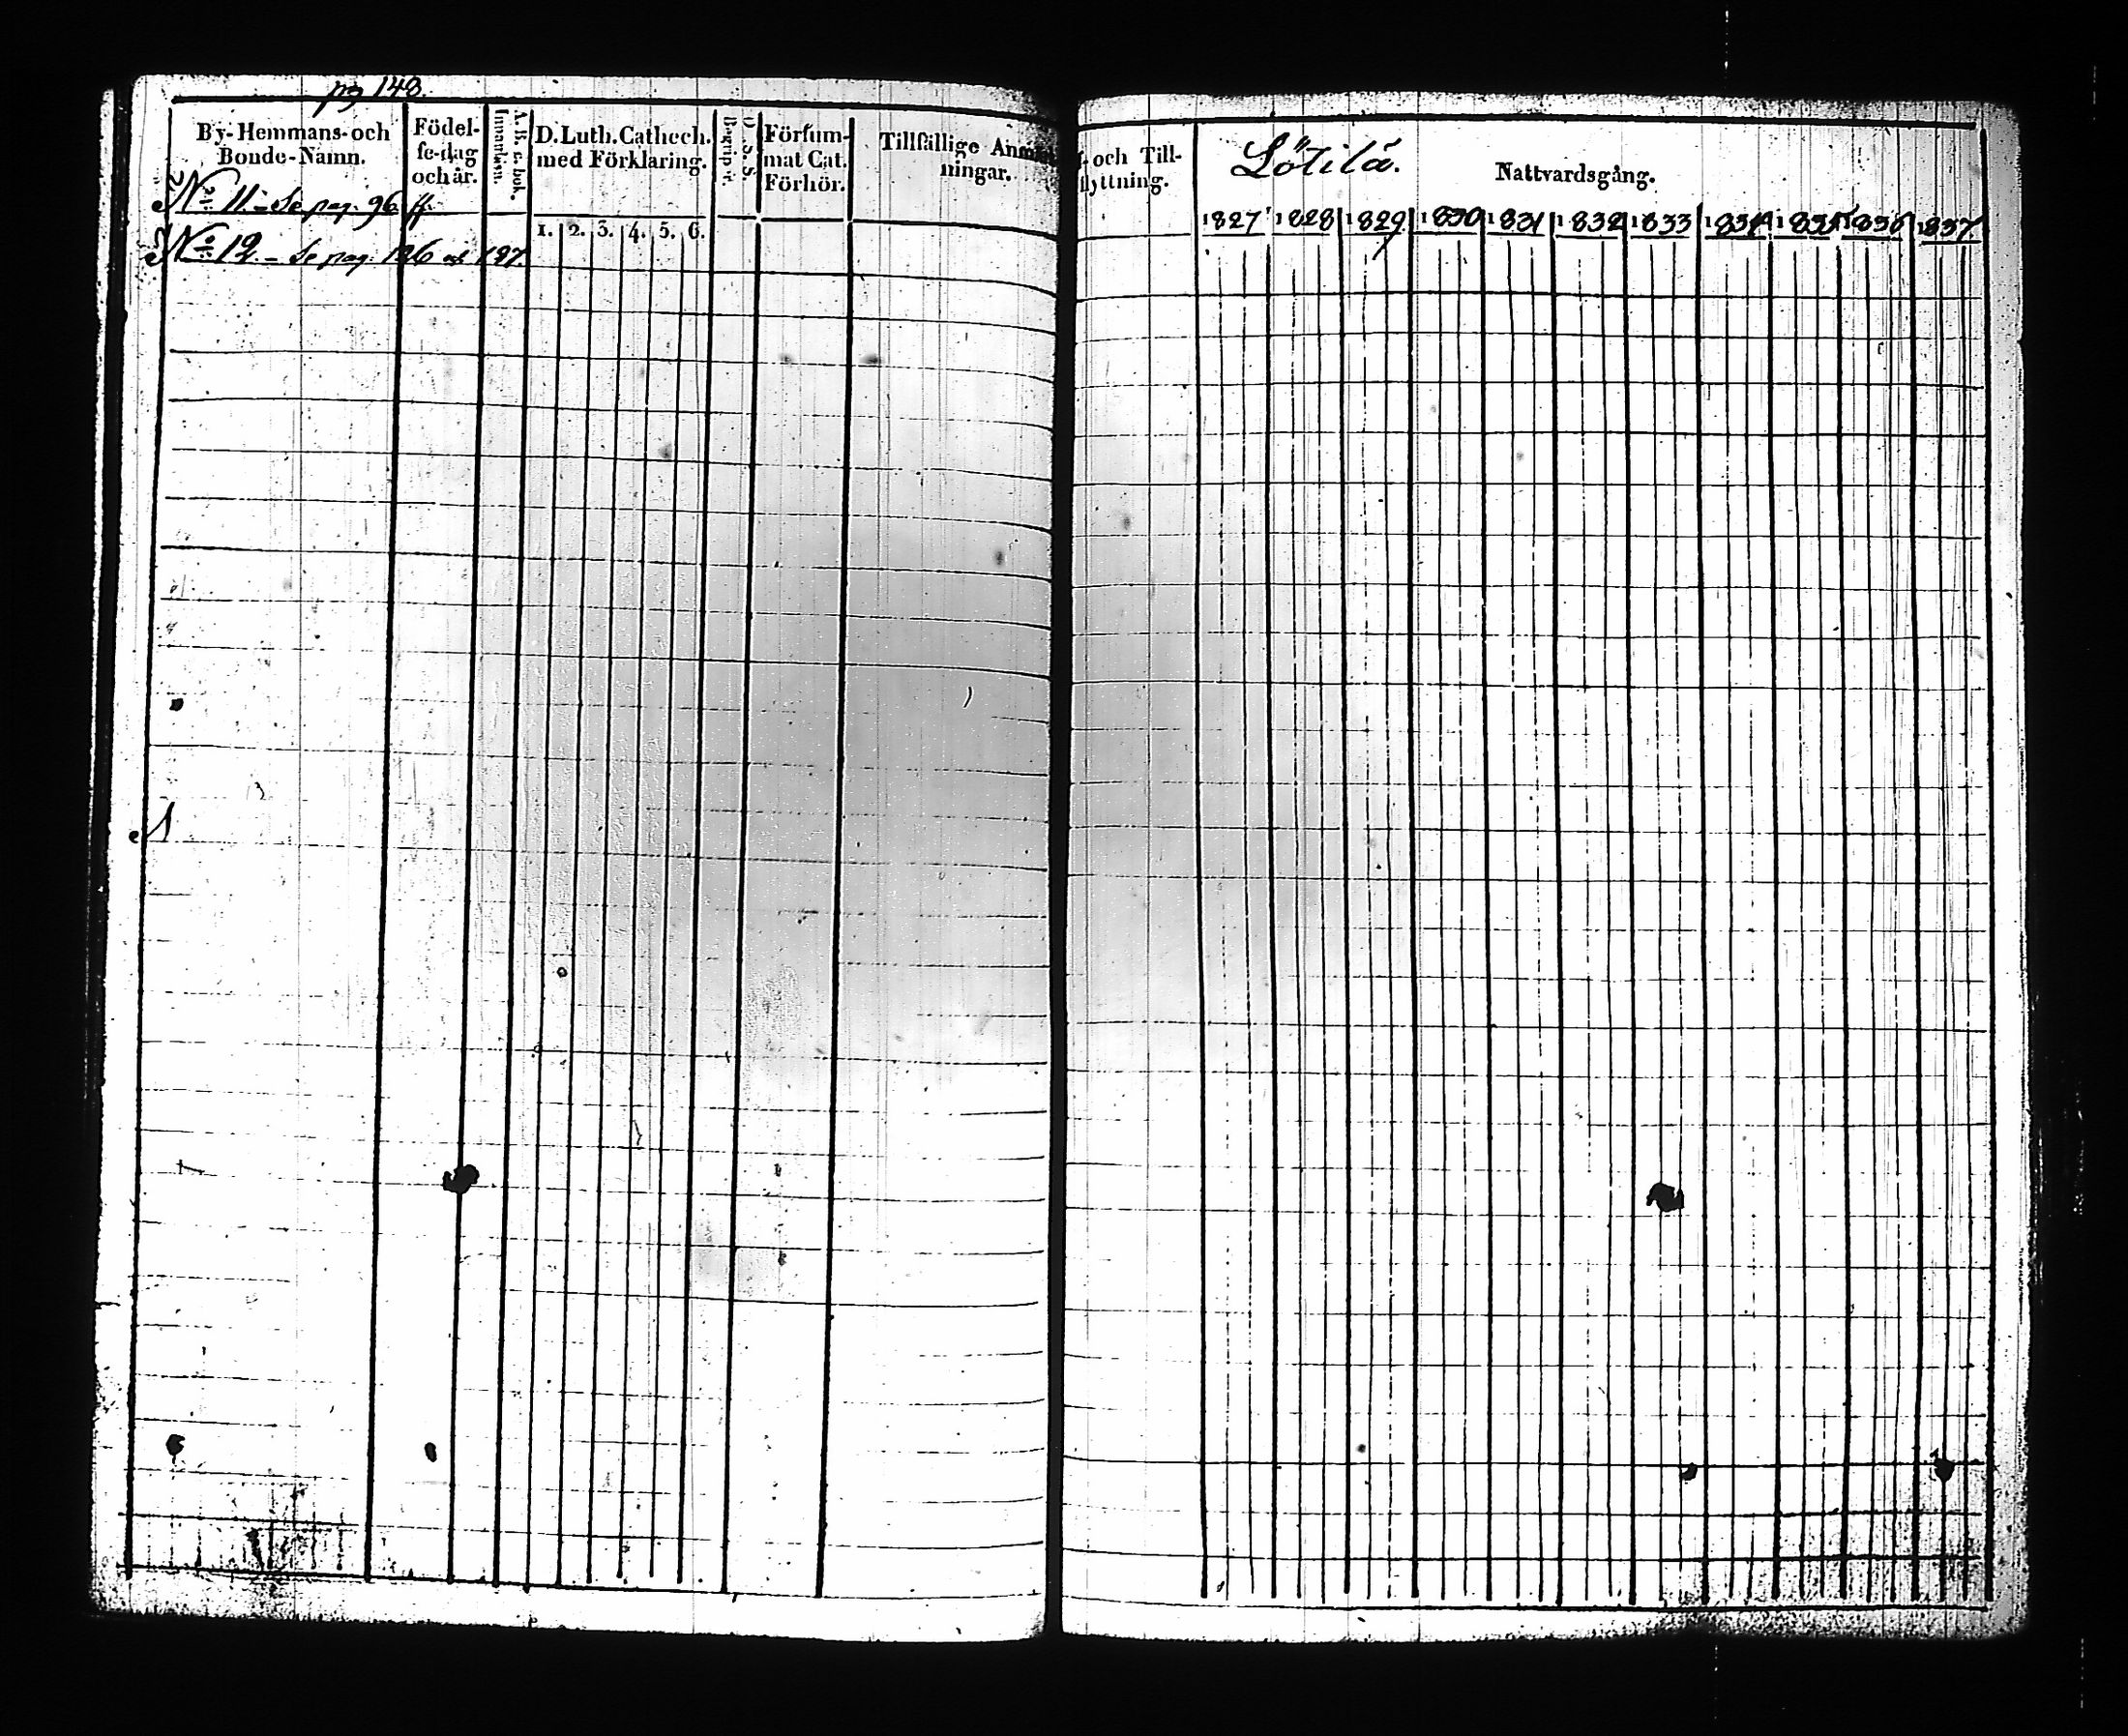 pg 148.
By-Hemmans- och Bonde-Namn.
Födel-se-dag och år.
A. B. c. bok. Innanläsn.
D. Luth. Cathech. med Förklaring.
1. 2. 3. 4. 5. 6.
D. S. S. Begrip r.
Försum-mat Cat. Förhör.
Tillfällige Anm ningar.
No 11. - Se pag. 96 ff.
No 12. - Se pag. 126 och 127.
och Till-flyttning.
Lötilä.
Nattvardsgång.
1827 1828 1829 1830 1831 1832 1833 1834 1835 1836 1837